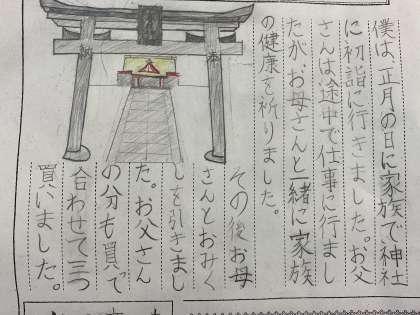 僕は、正月の日に家族で神社
に初詣に行きました。お父
さんは途中で仕事に行まし
たが、お母さんと一緒に家族
の健康を祈りました。
その後お母
さんとおみく
じを引きまし
た。お父さん
の分も買って
合わせて三つ
買いました。